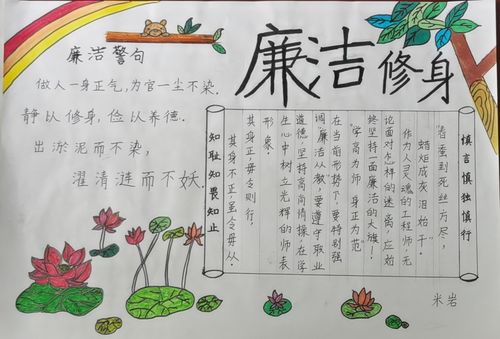 廉洁修身
廉洁警句
做人一身正气,为官一尘不染.
静以修身,俭以养德.
出淤泥而不染,
濯清涟而不妖.
慎言慎独慎行
"春蚕到死丝方尽,
蜡炬成灰泪始干."
作为人灵魂的工程师,无
论面对怎样的迷离,应始
终坚持一面廉洁的大旗!
"学高为师 身正为范"
在当前形势下,要特别强
调"廉洁从教",要遵守职业
道德,坚持高尚情操,在学
生心中树立光辉的师表
形象.
其身正,毋令则行,
其身不正,虽令毋从.
知耻知畏知止
米岩